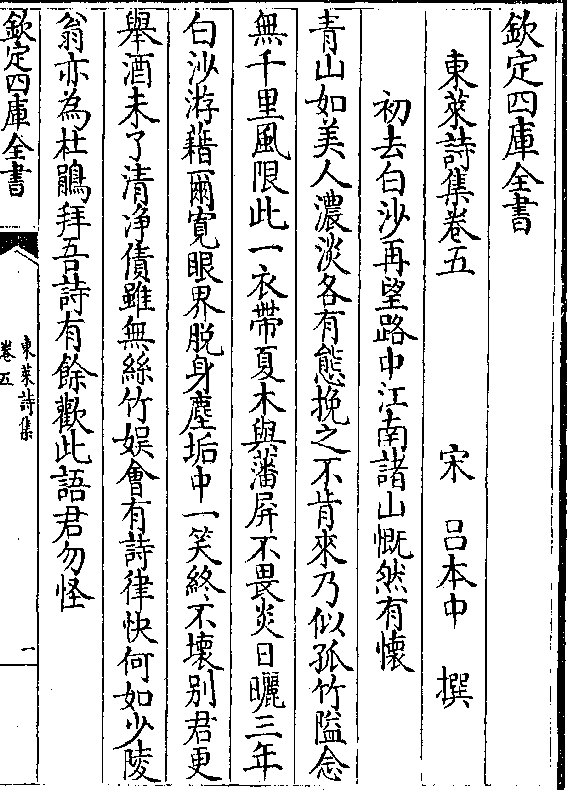 欽定四庫全書
東萊詩集卷五
宋 呂本中 撰
初去白沙再望路中江南諸山慨然有懐
青山如美人濃淡各有態挽之不肯來乃似孤竹隘念
無千里風限此一衣帶夏木與藩屏不畏炎日曬三年
白沙游藉爾寛眼界脱身塵垢中一笑終不壞别君更
舉酒未了清净債雖無絲竹娱㑹有詩律快何如少陵
翁亦為杜鵑拜吾詩有餘歡此語君勿怪
欽定四庫全書
東萊詩集
卷五
一